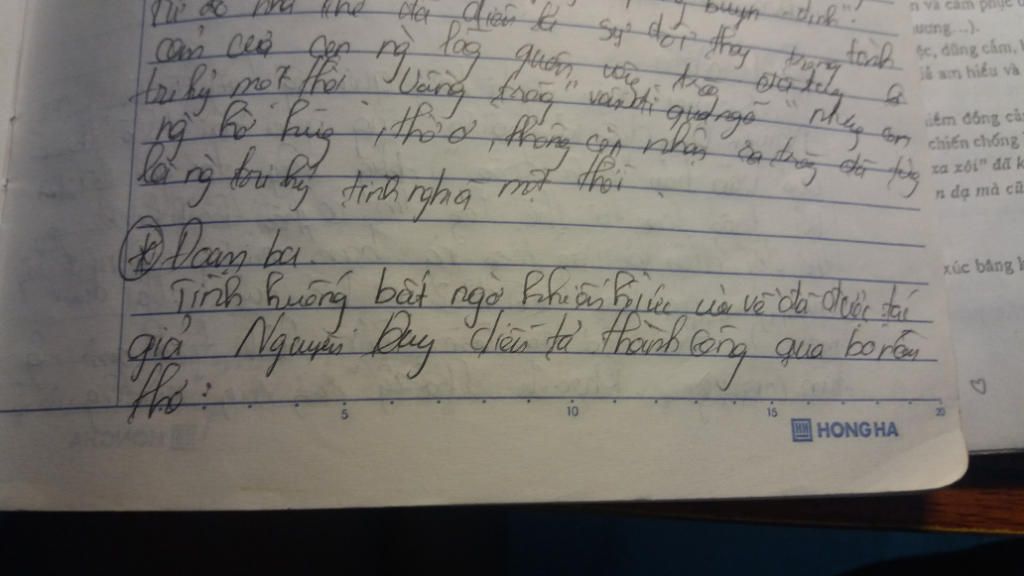 Từ đó nhà thơ đã diễn tả sự đổi thay trong tình
cảm của con ng lãng quên
tri kỷ một thời Vầng trăng " vẫn đi qua ngõ " nhưng con
ng hờ hững, thờ ơ, không còn nhận ra trăng đã từng
là ng tri kỷ tình nghĩa một thời.
* Đoạn ba.
Tình huống bất ngờ khiến ùa về đã được tác
giả Nguyễn Duy diễn tả thành công qua
thơ:
5 10 15 20
HONG HA
n và cảm phục
ương...).
ộc, dũng cảm,
iềm đồng cả
chiến chống
xa xôi" đã k
n dạ mà cũ
xúc bằng